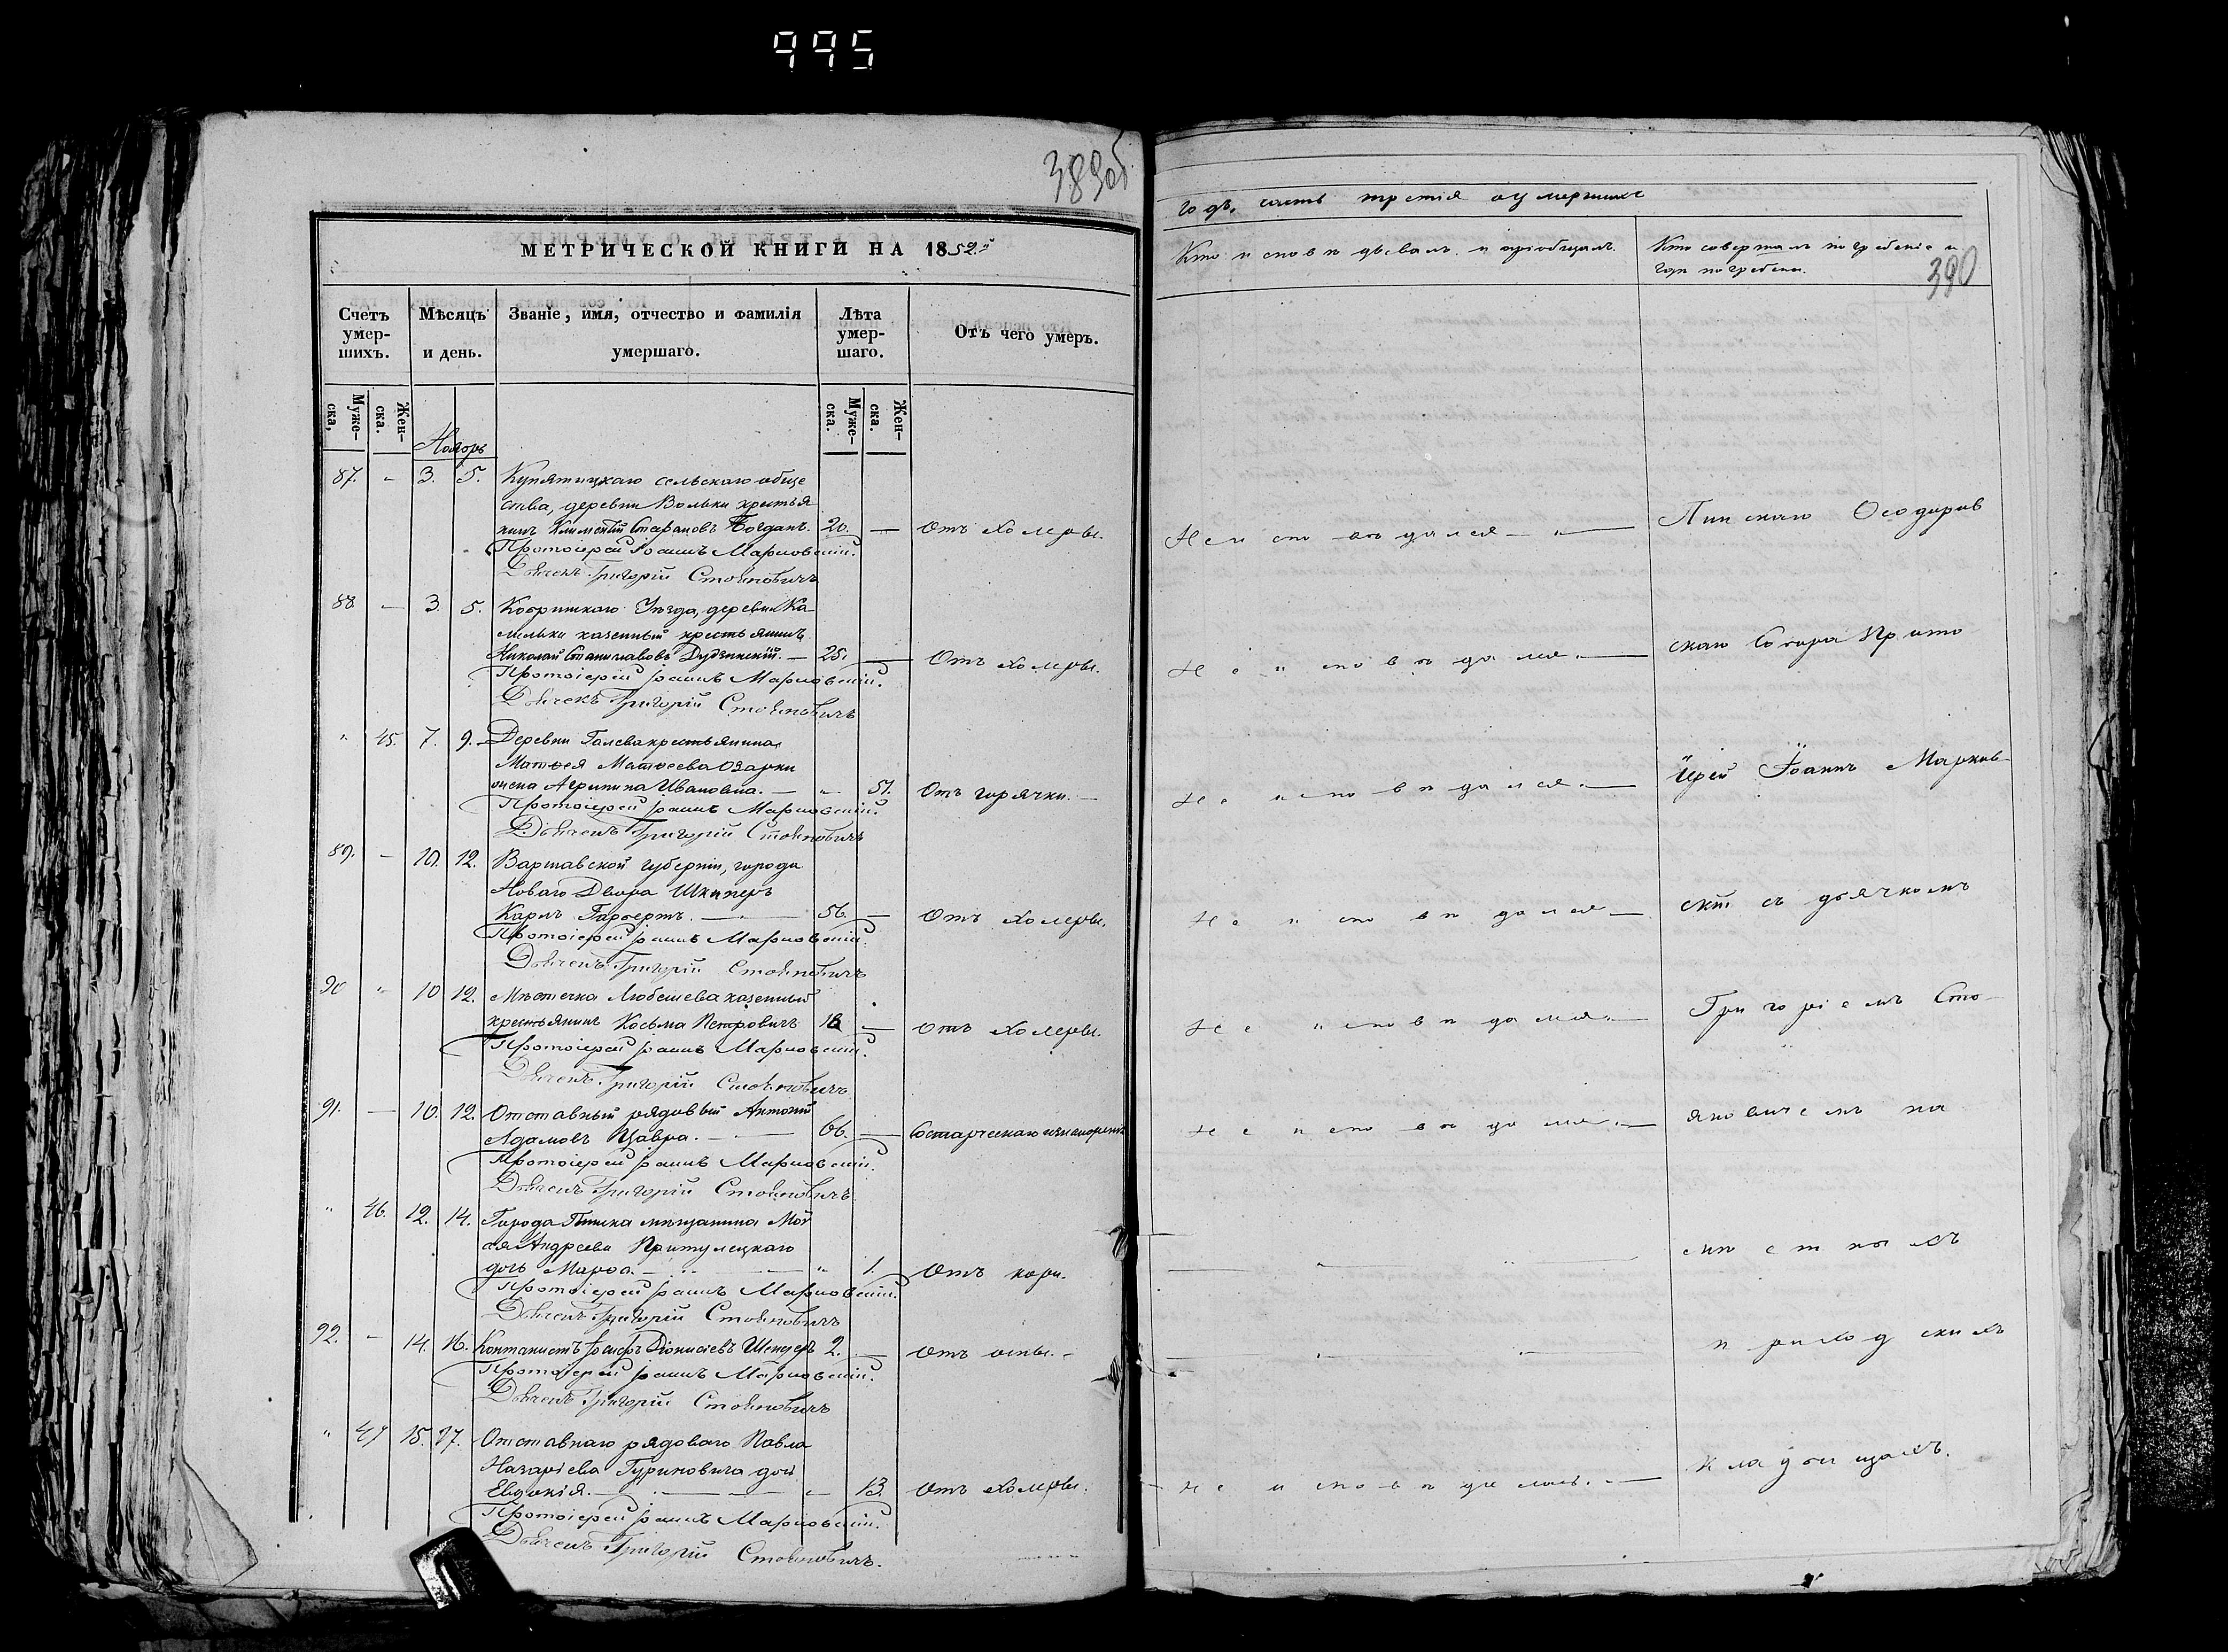 995
389об
МЕТРИЧЕСКОЙ КНИГИ НА 1852й
Счетъ умер-шихъ.
Мѣсяцъ и день.
Званіе, имя, отчество и фамилія умершаго.
Лѣта умер-шаго.
Отъ чего умеръ.
Муже-ска,
Жен-ска.
Муже-ска.
Жен-ска.
Ноябрь
87. - 3. 5. Купятицкаго сельскаго обще
ства, деревни Вольки крестья
нинъ Климентій Стефановъ Богданъ. 20. — Отъ холеры.
Протоіерей Іоаннъ Марковскій.
Дьячекъ Григорій Стояновичъ
88 — 3. 5. Кобринскаго Уѣзда, деревни Ка
мельки казенный крестьянинъ
Николай Станиславовъ Дудзинскій. — 25. — Отъ холеры.
Протоіерей Іоаннъ Марковскій.
Дьячекъ Григорій Стояновичъ
" 45. 7. 9. Деревни Галева крестьянина
Матѳея Матѳеева Озарки
жена Агрипина Ивановна. — " 51. Отъ горячки. —
Протоіерей Іоаннъ Марковскій.
Дьячекъ Григорій Стояновичъ
89. — 10. 12. Варшавской губерніи, города
Новаго Двора Шкиперъ
Карлъ Гарбертъ. — 56. — Отъ холеры.
Протоіерей Іоаннъ Марковскій.
Дьячекъ Григорій Стояновичъ
90 " 10 12. Мѣстечка Любешева казенный
крестьянинъ Косьма Петровичъ — Отъ холеры.
Протоіерей Іоаннъ Марковскій.
Дьячекъ Григорій Стояновичъ
91. — 10. 12. Отставный рядовый Антоній
Адамовъ — 66. —
Протоіерей Іоаннъ Марковскій.
Дьячекъ Григорій Стояновичъ
" 46. 12. 14. Города Пинска мѣщанина Мой
сея Андреева Притулецкаго
дочь Марѳа. — " 1. Отъ кори.
Протоіерей Іоаннъ Марковскій.
Дьячекъ Григорій Стояновичъ
92. — 14. 16. Іосифъ Діонисіевъ 2. — Отъ оспы. —
Протоіерей Іоаннъ Марковскій.
Дьячекъ Григорій Стояновичъ
" 47 15. 17. Отставнаго рядоваго Павла
Назаріева Гуриновича дочь
Евдокія. — 13. Отъ холеры.
Протоіерей Іоаннъ Марковскій.
Дьячекъ Григорій Стояновичъ.
годъ, часть третія о умершихъ
Кто исповѣдывалъ и пріобщалъ.
Кто совершалъ погребеніе и
гдѣ погребены.
390
Не исповѣдался — Пинскаго Ѳеодоров
Не исповѣдался — скаго Собора Прото
Не исповѣдался — іерей Іоаннъ Марков-
Не исповѣдался — скій съ дьячкомъ
Не исповѣдался — Григоріемъ Сто-
Не исповѣдался — яновичемъ на
приходскимъ
Не исповѣдалась. — кладбищахъ.